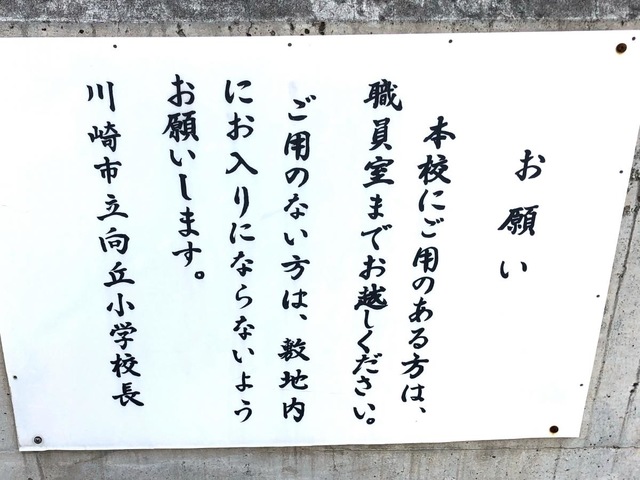 お願い
本校にご用のある方は、
職員室までお越しください。
ご用のない方は、敷地内
にお入りにならないよう
お願いします。
川崎市立向丘小学校長